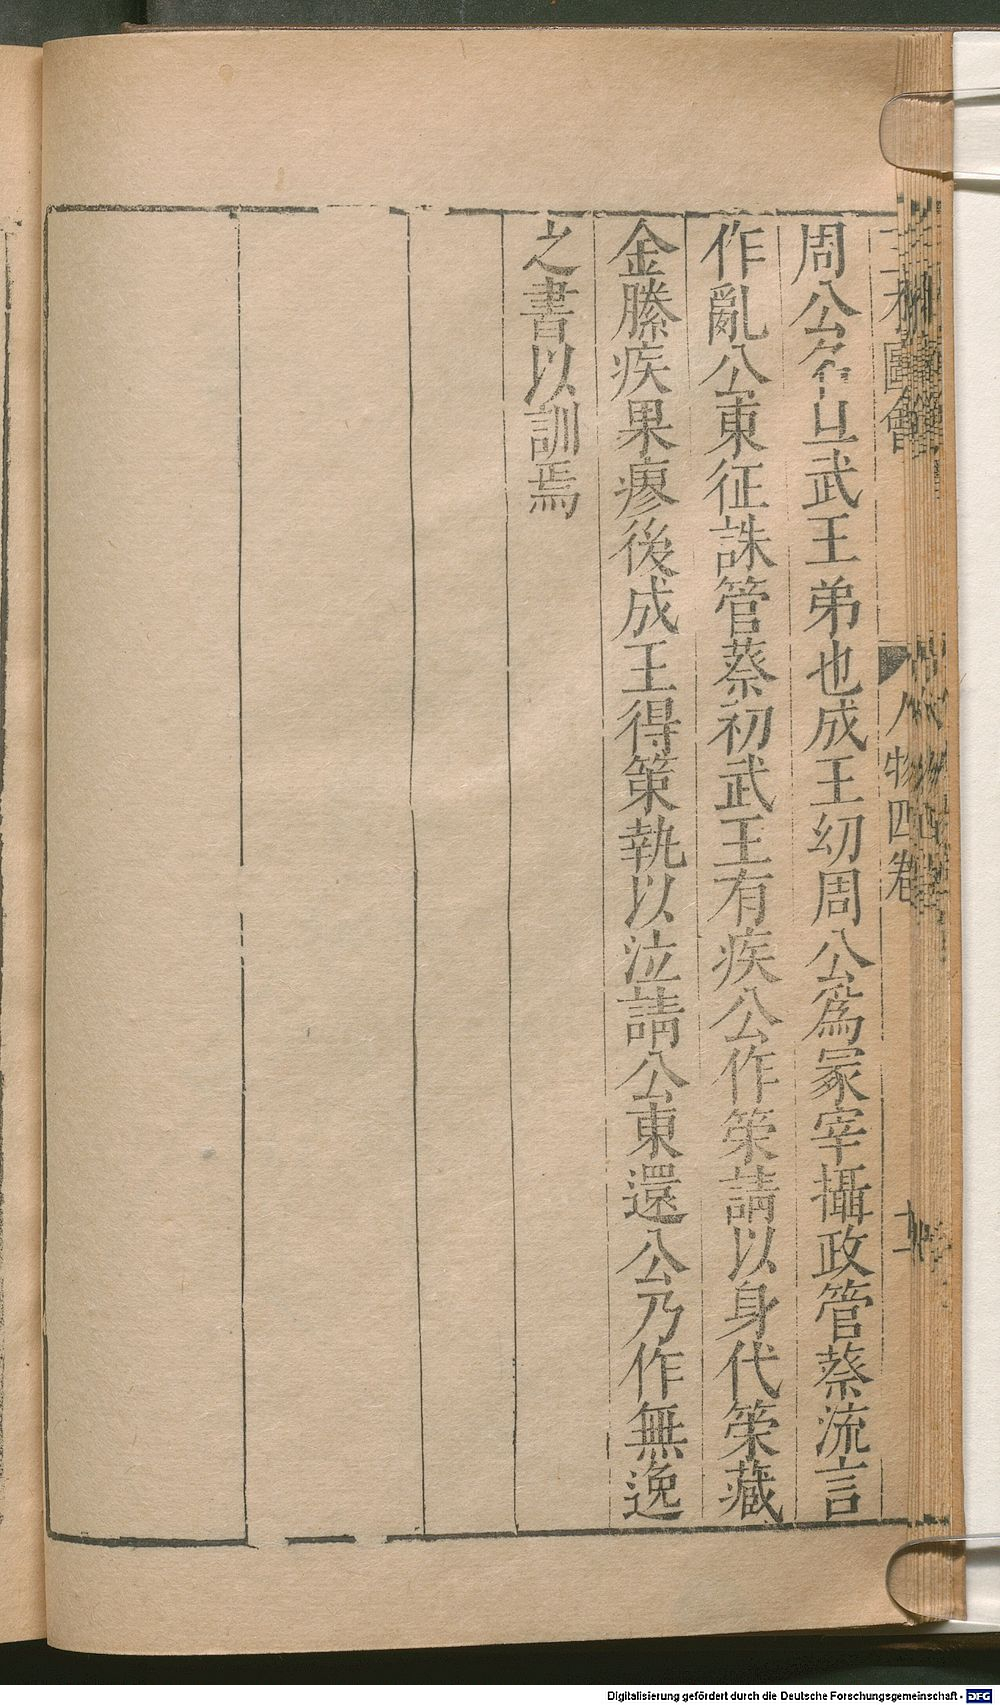 三才圖會 人物四卷
周公名旦武王弟也成王幼周公爲冢宰攝政管蔡流言
作亂公東征誅管蔡初武王有疾公作策請以身代策藏
金縢疾果瘳後成王得策執以泣請公東還公乃作無逸
之書以訓焉
Digitalisierung gefördert durch die Deutsche Forschungsgemeinschaft - DFG